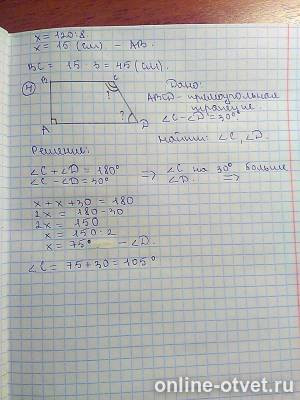 x = 120:8.
x = 15 (см) – AB.
BC = 15 · 3 = 45 (см).
4
B
C
?
?
A
D
Дано:
ABCD – прямоугольная
трапеция.
∠C – ∠D = 30°
Найти: ∠C, ∠D.
Решение:
∠C + ∠D = 180°
∠C – ∠D = 30° ⇒ ∠C на 30° больше
∠D. ⇒
x + x + 30 = 180
2x = 180 – 30
2x = 150
x = 150 : 2
x = 75° – ∠D.
∠C = 75 + 30 = 105°
online-otvet.ru